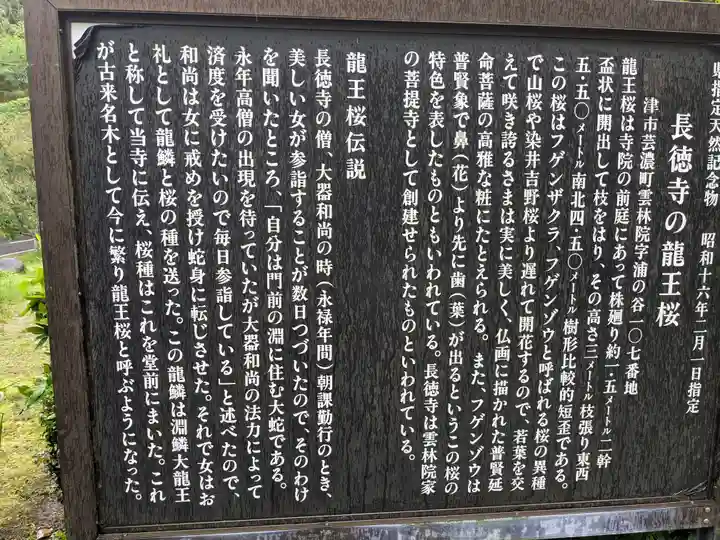 県指定天然記念物　昭和十六年二月一日指定
長徳寺の龍王桜
津市芸濃町雲林院字浦の谷一〇七番地
龍王桜は寺院の前庭にあって株廻り約一・五メートル二幹
盃状に開出して枝をはり、その高さ三メートル枝張り東西
五・五〇メートル南北四・五〇メートル樹形比較的短歪である。
この桜はフゲンザクラ、フゲンゾウと呼ばれる桜の異種
で山桜や染井吉野桜より遅れて開花するので、若葉を交
えて咲き誇るさまは実に美しく、仏画に描かれた普賢延
命菩薩の高雅な粧にたとえられる。また、フゲンゾウは
普賢象で鼻（花）より先に歯（葉）が出るというこの桜の
特色を表したものともいわれている。長徳寺は雲林院家
の菩提寺として創建せられたものといわれている。
龍王桜伝説
長徳寺の僧、大器和尚の時（永禄年間）朝課勤行のとき、
美しい女が参詣することが数日つづいたので、そのわけ
を聞いたところ、「自分は門前の淵に住む大蛇である。
永年高僧の出現を待っていたが大器和尚の法力によって
済度を受けたいので毎日参詣している」と述べたので、
和尚は女に戒めを授け蛇身に転じさせた。それで女はお
礼として龍鱗と桜の種を送った。この龍鱗は淵鱗大龍王
と称して当寺に伝え、桜種はこれを堂前にまいた。これ
が古来名木として今に繁り龍王桜と呼ぶようになった。